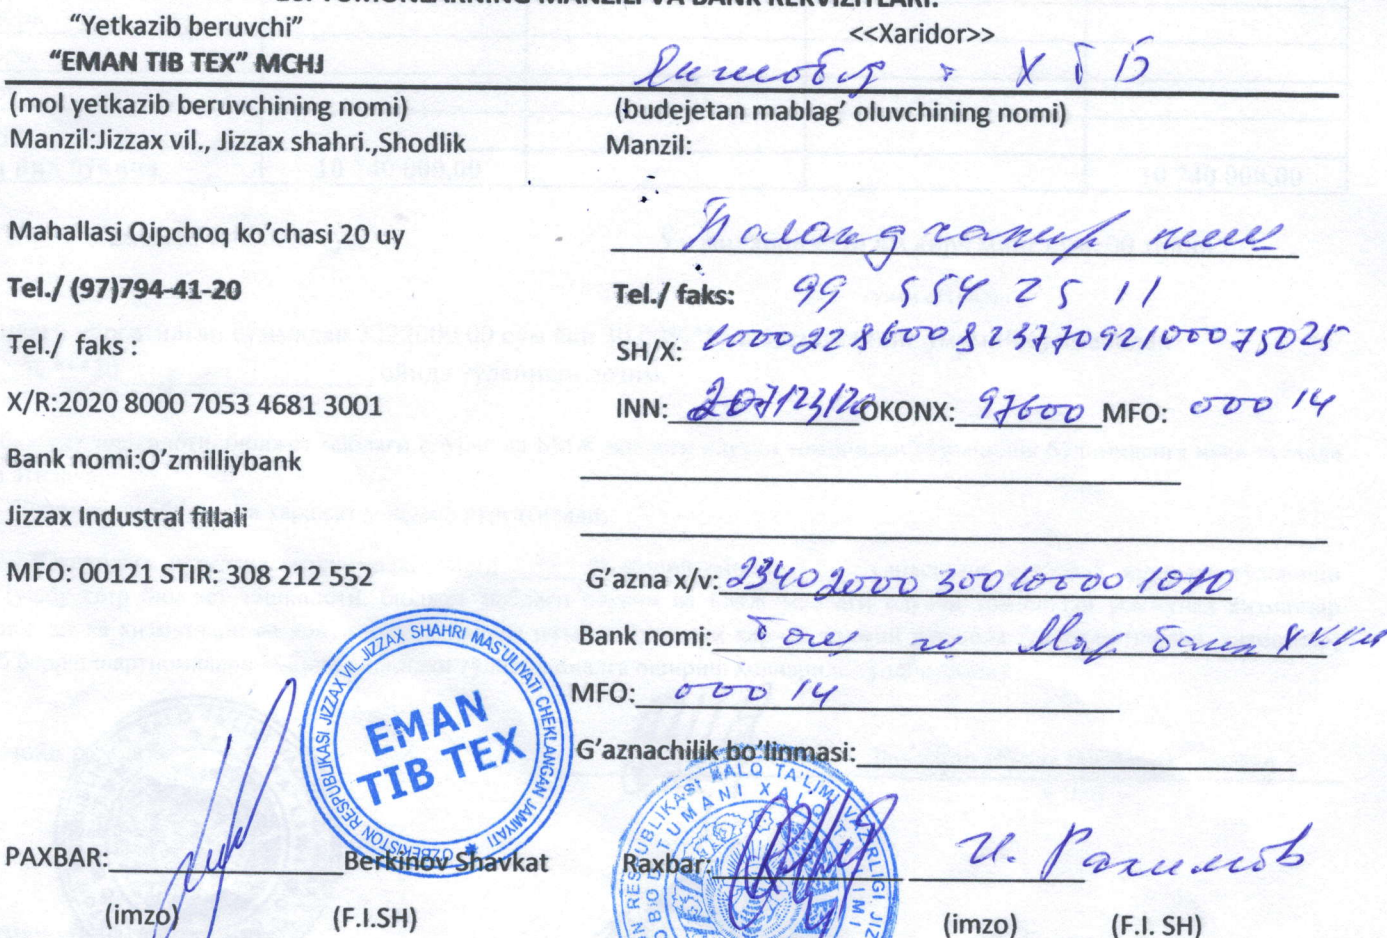 "Yetkazib beruvchi"
"EMAN TIB TEX" MCHJ
(mol yetkazib beruvchining nomi)
Manzil:Jizzax vil., Jizzax shahri.,Shodlik
Mahallasi Qipchoq ko'chasi 20 uy
Tel./ (97)794-41-20
Tel./ faks :
X/R:2020 8000 7053 4681 3001
Bank nomi:O'zmilliybank
Jizzax Industral fillali
MFO: 00121 STIR: 308 212 552
PAXBAR: Berkinov Shavkat
(imzo) (F.I.SH)
OʻZBEKISTON RESPUBLIKASI JIZZAX VIL. JIZZAX SHAHRI MAS'ULIYATI CHEKLANGAN JAMIYATI
EMAN
TIB TEX
<<Xaridor>>
Х Т Б
(budejetan mablag' oluvchining nomi)
Manzil:
Tel./ faks: 99 554 25 11
SH/X: 100022860082377092100075025
INN: 207123120 OKONX: 97600 MFO: 00014
G'azna x/v: 23402000300100001010
Bank nomi: Мар банк
MFO: 00014
G'aznachilik bo'linmasi:
Raxbar: И. Рахимов
(imzo) (F.I. SH)